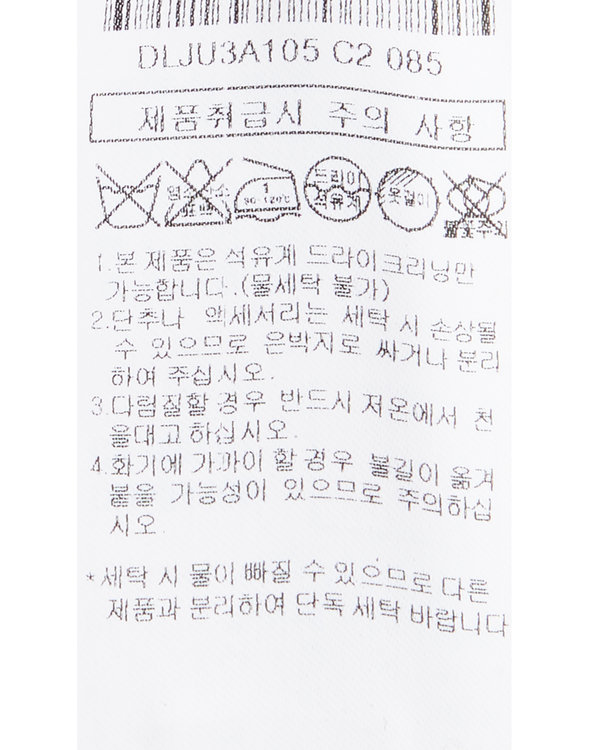 DLJU3A105 C2 085
제품취급시 주의 사항
염소산소
표백
1
80-120℃
드라이
석유계
옷걸이
불꽃주의
1.본 제품은 석유계 드라이크리닝만
가능합니다.(물세탁 불가)
2.단추나 액세서리는 세탁 시 손상될
수 있으므로 은박지로 싸거나 분리
하여 주십시오.
3.다림질할 경우 반드시 저온에서 천
을대고 하십시오.
4.화기에 가까이 할 경우 불길이 옮겨
붙을 가능성이 있으므로 주의하십
시오.
*세탁 시 물이 빠질 수 있으므로 다른
제품과 분리하여 단독 세탁 바랍니다